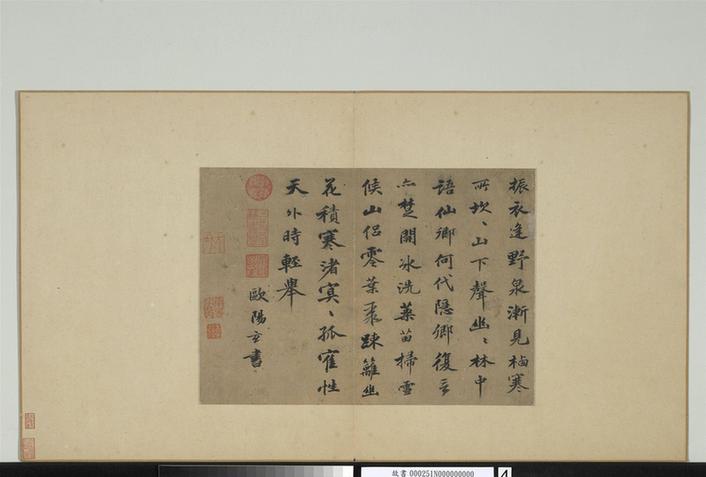 振衣逢野泉漸見柏寒
所坎〻山下聲幽〻林中
語仙鄉何代隱鄉復言
亦楚開冰洗藥苗掃雪
候山侶零葉聚踈籬幽
花積寒渚冥〻孤寉性
天外時輕舉
歐陽玄書
故書 000251N000000000
4